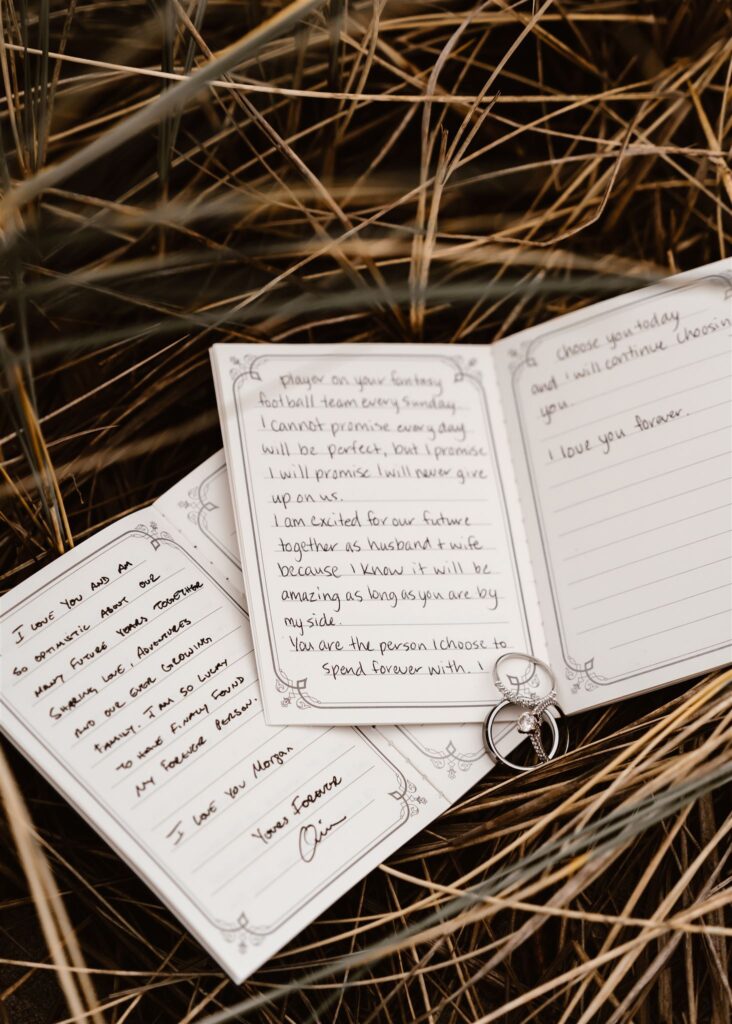 player on your fantasy
football team every sunday.
I cannot promise every day
will be perfect, but I promise
I will promise I will never give
up on us.
I am excited for our future
together as husband + wife
because I know it will be
amazing as long as you are by
my side.
You are the person I choose to
spend forever with. I
choose you today
and I will continue choosin
you.
I love you forever.
I LOVE YOU AND AM
SO OPTIMISTIC ABOUT OUR
MANY FUTURE YEARS TOGETHER
SHARING LOVE, ADVENTURES
AND OUR EVER GROWING
FAMILY. I AM SO LUCKY
TO HAVE FINALLY FOUND
MY FOREVER PERSON.
I LOVE YOU Morgan
YOURS FOREVER